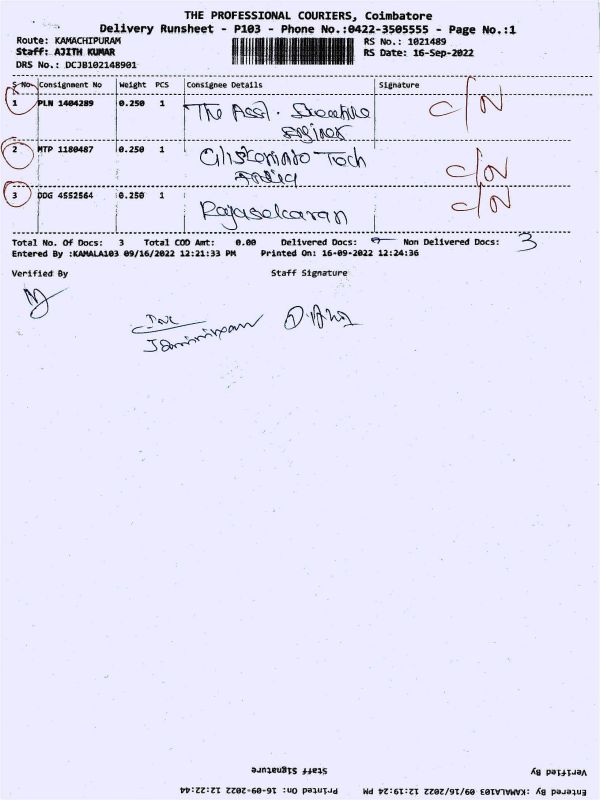 THE PROFESSIONAL COURIERS, Coimbatore
Delivery Runsheet - P103 - Phone No.:0422-3505555 - Page No.:1
Route: KAMACHIPURAM RS No.: 1021489
Staff: AJITH KUMAR RS Date: 16-Sep-2022
DRS No.: DCJB102148901
S No Consignment No Weight PCS Consignee Details Signature
1 PLN 1404289 0.250 1 The Asst. Executive C/N
Enginer
2 MTP 1180487 0.250 1 Tech C/N
India
3 DDG 4552564 0.250 1 Rajasekaran C/N
Total No. Of Docs: 3 Total COD Amt: 0.00 Delivered Docs: Non Delivered Docs: 3
Entered By :KAMALA103 09/16/2022 12:21:33 PM Printed On: 16-09-2022 12:24:36
Verified By Staff Signature
Verified By Staff Signature
Entered By :KAMALA103 09/16/2022 12:19:24 PM Printed On: 16-09-2022 12:22:44